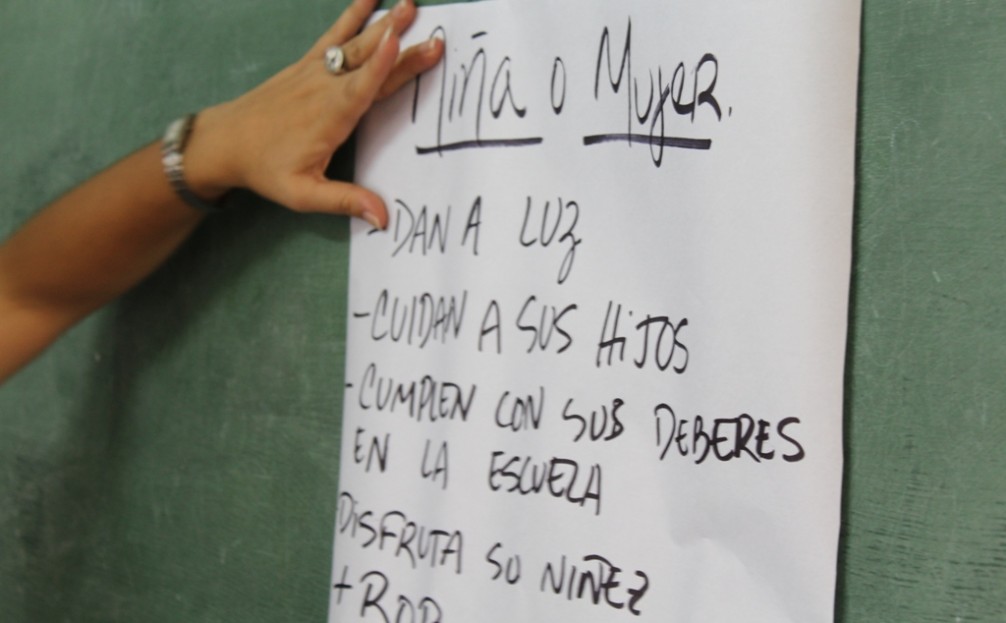 Niña o Mujer.
- DAN A LUZ
- CUIDAN A SUS HIJOS
- CUMPLEN CON SUS DEBERES
EN LA ESCUELA
DISFRUTA SU NIÑEZ
+